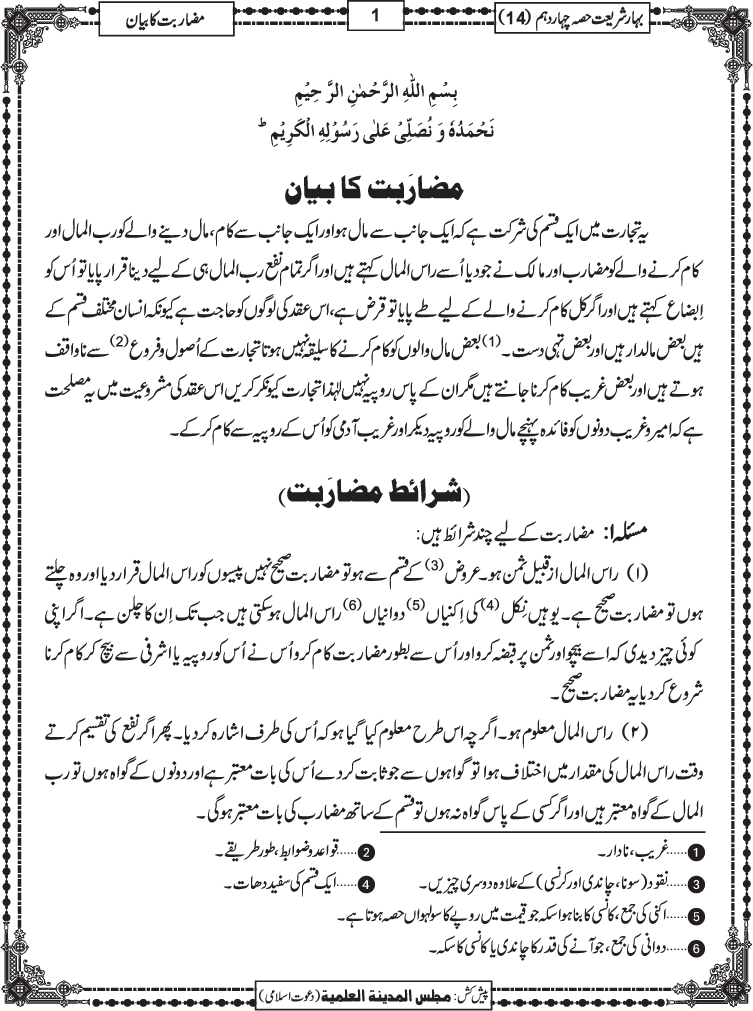 بہارِ شریعت حصہ چہاردہم (14)
1
مضاربت کا بیان
بِسْمِ اللّٰهِ الرَّحْمٰنِ الرَّحِیْمِ
نَحْمَدُهٗ وَ نُصَلِّیْ عَلٰی رَسُوْلِهِ الْکَرِیْمِ ؕ
مضارَبت کا بیان
یہ تجارت میں ایک قسم کی شرکت ہے کہ ایک جانب سے مال ہو اور ایک جانب سے کام، مال دینے والے کو رب المال اور
کام کرنے والے کو مضارب اور مالک نے جو دیا اُسے راس المال کہتے ہیں اور اگر تمام نفع رب المال ہی کے لیے دینا قرار پایا تو اُس کو
اِبضاع کہتے ہیں اور اگر کل کام کرنے والے کے لیے طے پایا تو قرض ہے، اس عقد کی لوگوں کو حاجت ہے کیونکہ انسان مختلف قسم کے
ہیں بعض مالدار ہیں اور بعض تہی دست۔(1) بعض مال والوں کو کام کرنے کا سلیقہ نہیں ہوتا تجارت کے اُصول و فروع(2) سے ناواقف
ہوتے ہیں اور بعض غریب کام کرنا جانتے ہیں مگر ان کے پاس روپیہ نہیں لہٰذا تجارت کیونکر کریں اس عقد کی مشروعیت میں یہ مصلحت
ہے کہ امیر و غریب دونوں کو فائدہ پہنچے مال والے کو روپیہ دیکر اور غریب آدمی کو اُس کے روپیہ سے کام کر کے۔
(شرائط مضارَبت)
مسئلہ ۱: مضاربت کے لیے چند شرائط ہیں:
(۱) راس المال از قبیل ثمن ہو۔ عروض(3) کے قسم سے ہو تو مضاربت صحیح نہیں پیسوں کو راس المال قرار دیا اور وہ چلتے
ہوں تو مضاربت صحیح ہے۔ یوہیں نِکل(4) کی اِکنیاں(5) دوانیاں(6) راس المال ہوسکتی ہیں جب تک اِن کا چلن ہے۔ اگر اپنی
کوئی چیز دیدی کہ اسے بیچو اور ثمن پر قبضہ کرو اور اُس سے بطور مضاربت کام کرو اُس نے اُس کو روپیہ یا اشرفی سے بیچ کر کام کرنا
شروع کر دیا یہ مضاربت صحیح۔
(۲) راس المال معلوم ہو۔ اگرچہ اس طرح معلوم کیا گیا ہو کہ اُس کی طرف اشارہ کر دیا۔ پھر اگر نفع کی تقسیم کرتے
وقت راس المال کی مقدار میں اختلاف ہوا تو گواہوں سے جو ثابت کر دے اُس کی بات معتبر ہے اور دونوں کے گواہ ہوں تو رب
المال کے گواہ معتبر ہیں اور اگر کسی کے پاس گواہ نہ ہوں تو قسم کے ساتھ مضارب کی بات معتبر ہوگی۔
1......غریب، نادار۔ 2......قواعد و ضوابط، طور طریقے۔
3......نقود (سونا، چاندی اور کرنسی) کے علاوہ دوسری چیزیں۔ 4......ایک قسم کی سفید دھات۔
5......اکنی کی جمع، کانسی کا بنا ہوا سکہ جو قیمت میں روپے کا سولہواں حصہ ہوتا ہے۔
6......دوانی کی جمع، جو آنے کی قدر کا چاندی یا کانسی کا سکہ۔
پیش کش: مجلس المدینة العلمیة (دعوت اسلامی)